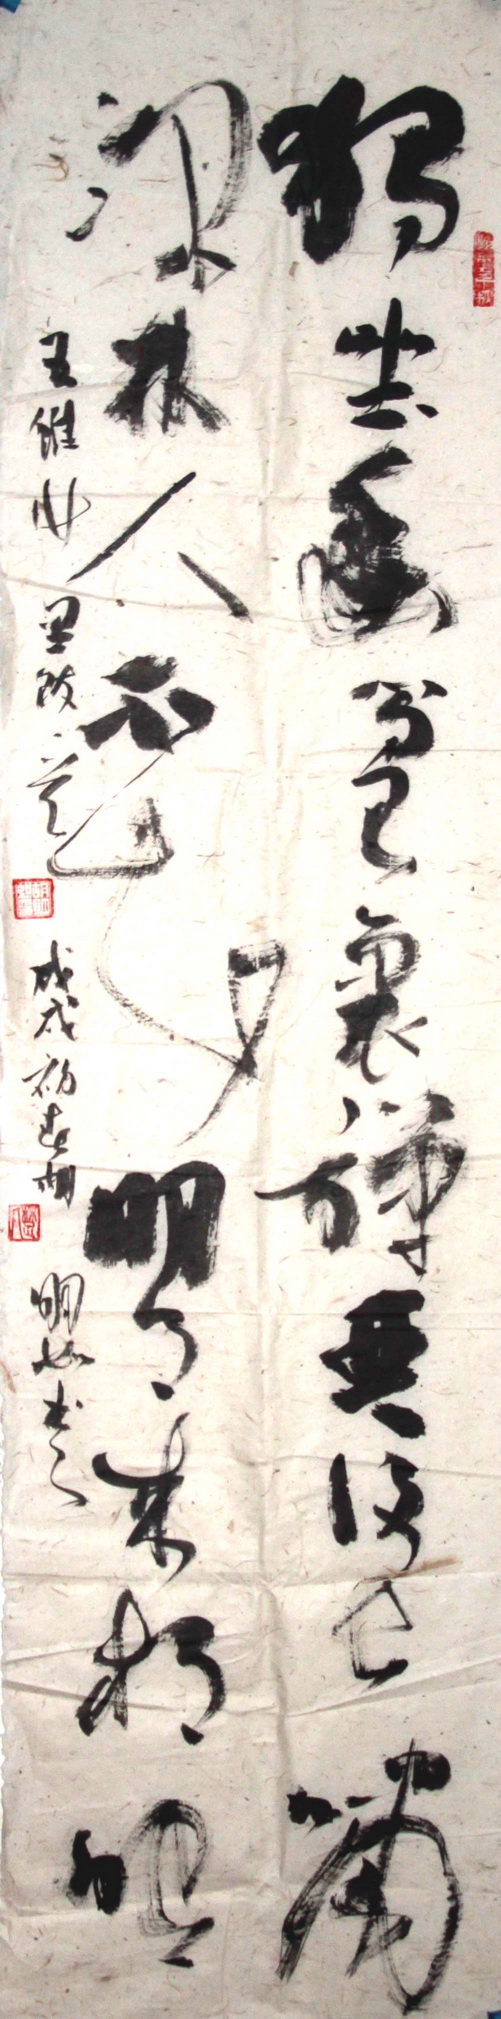 獨坐幽篁裏彈琴復長嘯
深林人不知明月来相照
王維竹里館 戊戌初春胡明如書